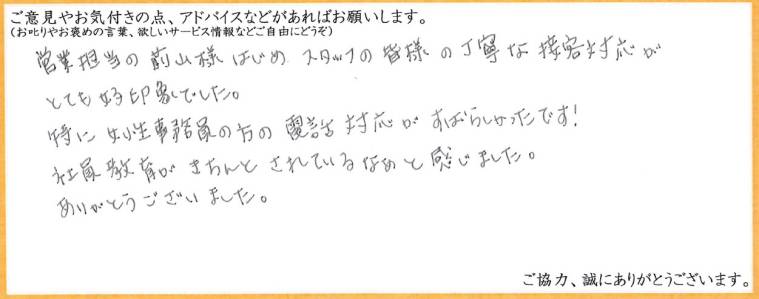 ご意見やお気付きの点、アドバイスなどがあればお願いします。
(お叱りやお褒めの言葉、欲しいサービス情報などご自由にどうぞ)
営業担当の前山様はじめ スタッフの皆様の丁寧な接客対応が
とても好印象でした。
特に 女性事務員の方の電話対応がすばらしかったです!
社員教育がきちんとされているなめと感じました。
ありがとうございました。
ご協力、誠にありがとうございます。